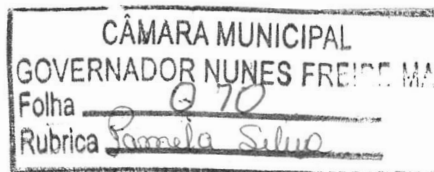 CÂMARA MUNICIPAL
GOVERNADOR NUNES FREIRE MA
Folha 070
Rubrica Pamela Silva